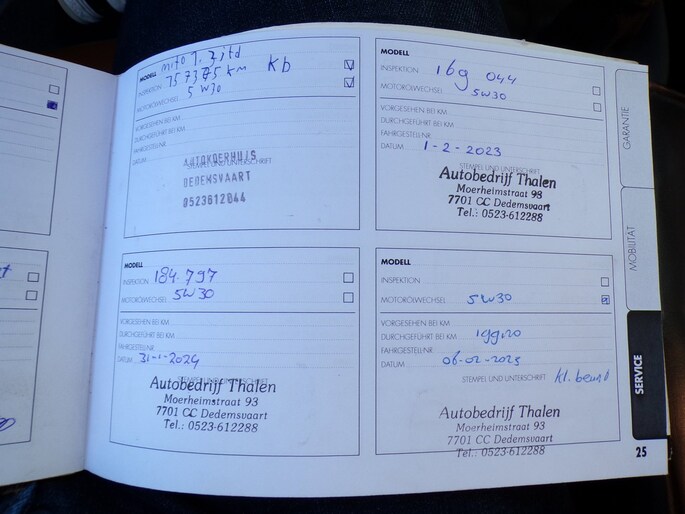 MODELL mito 1.3jtd
INSPEKTION 157375 km kb
MOTORÖLWECHSEL 5W30
VORGESEHEN BEI KM
DURCHGEFÜHRT BEI KM
FAHRGESTELLNR.
DATUM
STEMPEL UND UNTERSCHRIFT
AUTOKOERHUIS
DEDEMSVAART
0523612044
MODELL
INSPEKTION 169 044
MOTORÖLWECHSEL 5W30
VORGESEHEN BEI KM
DURCHGEFÜHRT BEI KM
FAHRGESTELLNR.
DATUM 1-2-2023
STEMPEL UND UNTERSCHRIFT
Autobedrijf Thalen
Moerheimstraat 93
7701 CC Dedemsvaart
Tel.: 0523-612288
MODELL
INSPEKTION 184.797
MOTORÖLWECHSEL 5W30
VORGESEHEN BEI KM
DURCHGEFÜHRT BEI KM
FAHRGESTELLNR.
DATUM 31-1-2024
STEMPEL UND UNTERSCHRIFT
Autobedrijf Thalen
Moerheimstraat 93
7701 CC Dedemsvaart
Tel.: 0523-612288
MODELL
INSPEKTION
MOTORÖLWECHSEL 5W30
VORGESEHEN BEI KM
DURCHGEFÜHRT BEI KM
FAHRGESTELLNR.
DATUM 06-02-2025
STEMPEL UND UNTERSCHRIFT kl. beurt
Autobedrijf Thalen
Moerheimstraat 93
7701 CC Dedemsvaart
Tel.: 0523-612288
GARANTIE
MOBILITÄT
SERVICE
25